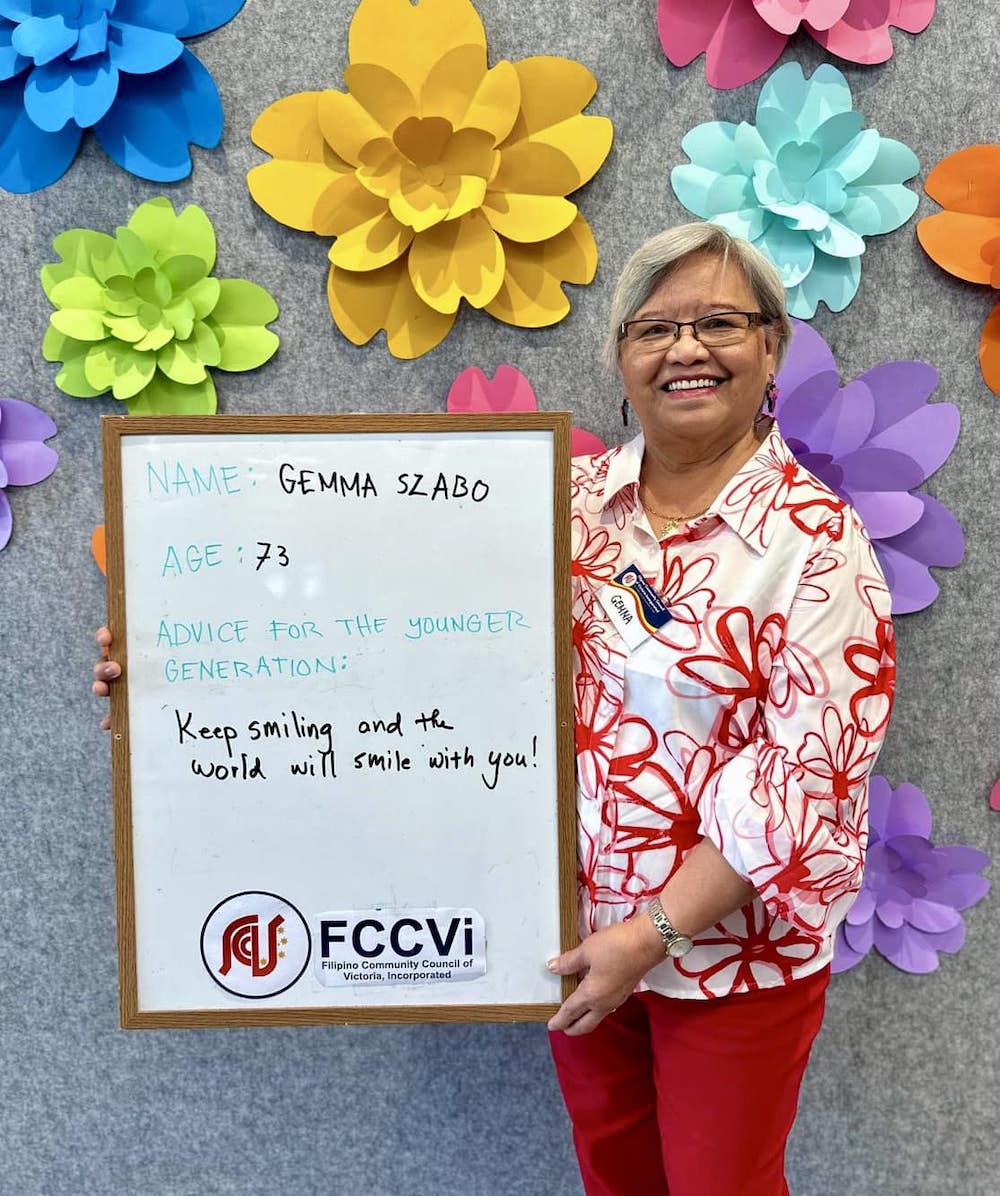 NAME: GEMMA SZABO
AGE: 73
ADVICE FOR THE YOUNGER
GENERATION:
Keep smiling and the
world will smile with you!
FCCVi
Filipino Community Council of
Victoria, Incorporated
GEMMA